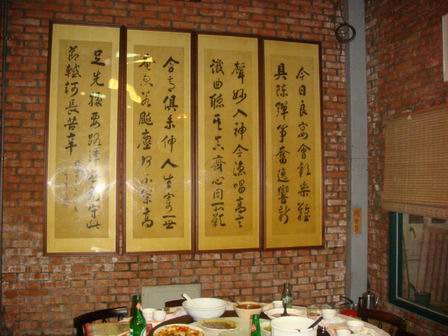 今日良宴會歡樂難
具陳彈箏奮逸響新
聲妙入神令德唱高言
識曲聽其真齊心同所願
含意俱未伸人生寄一世
奄忽若飆塵何不策高
足先據要路津無為守窮
賤轗軻長苦辛